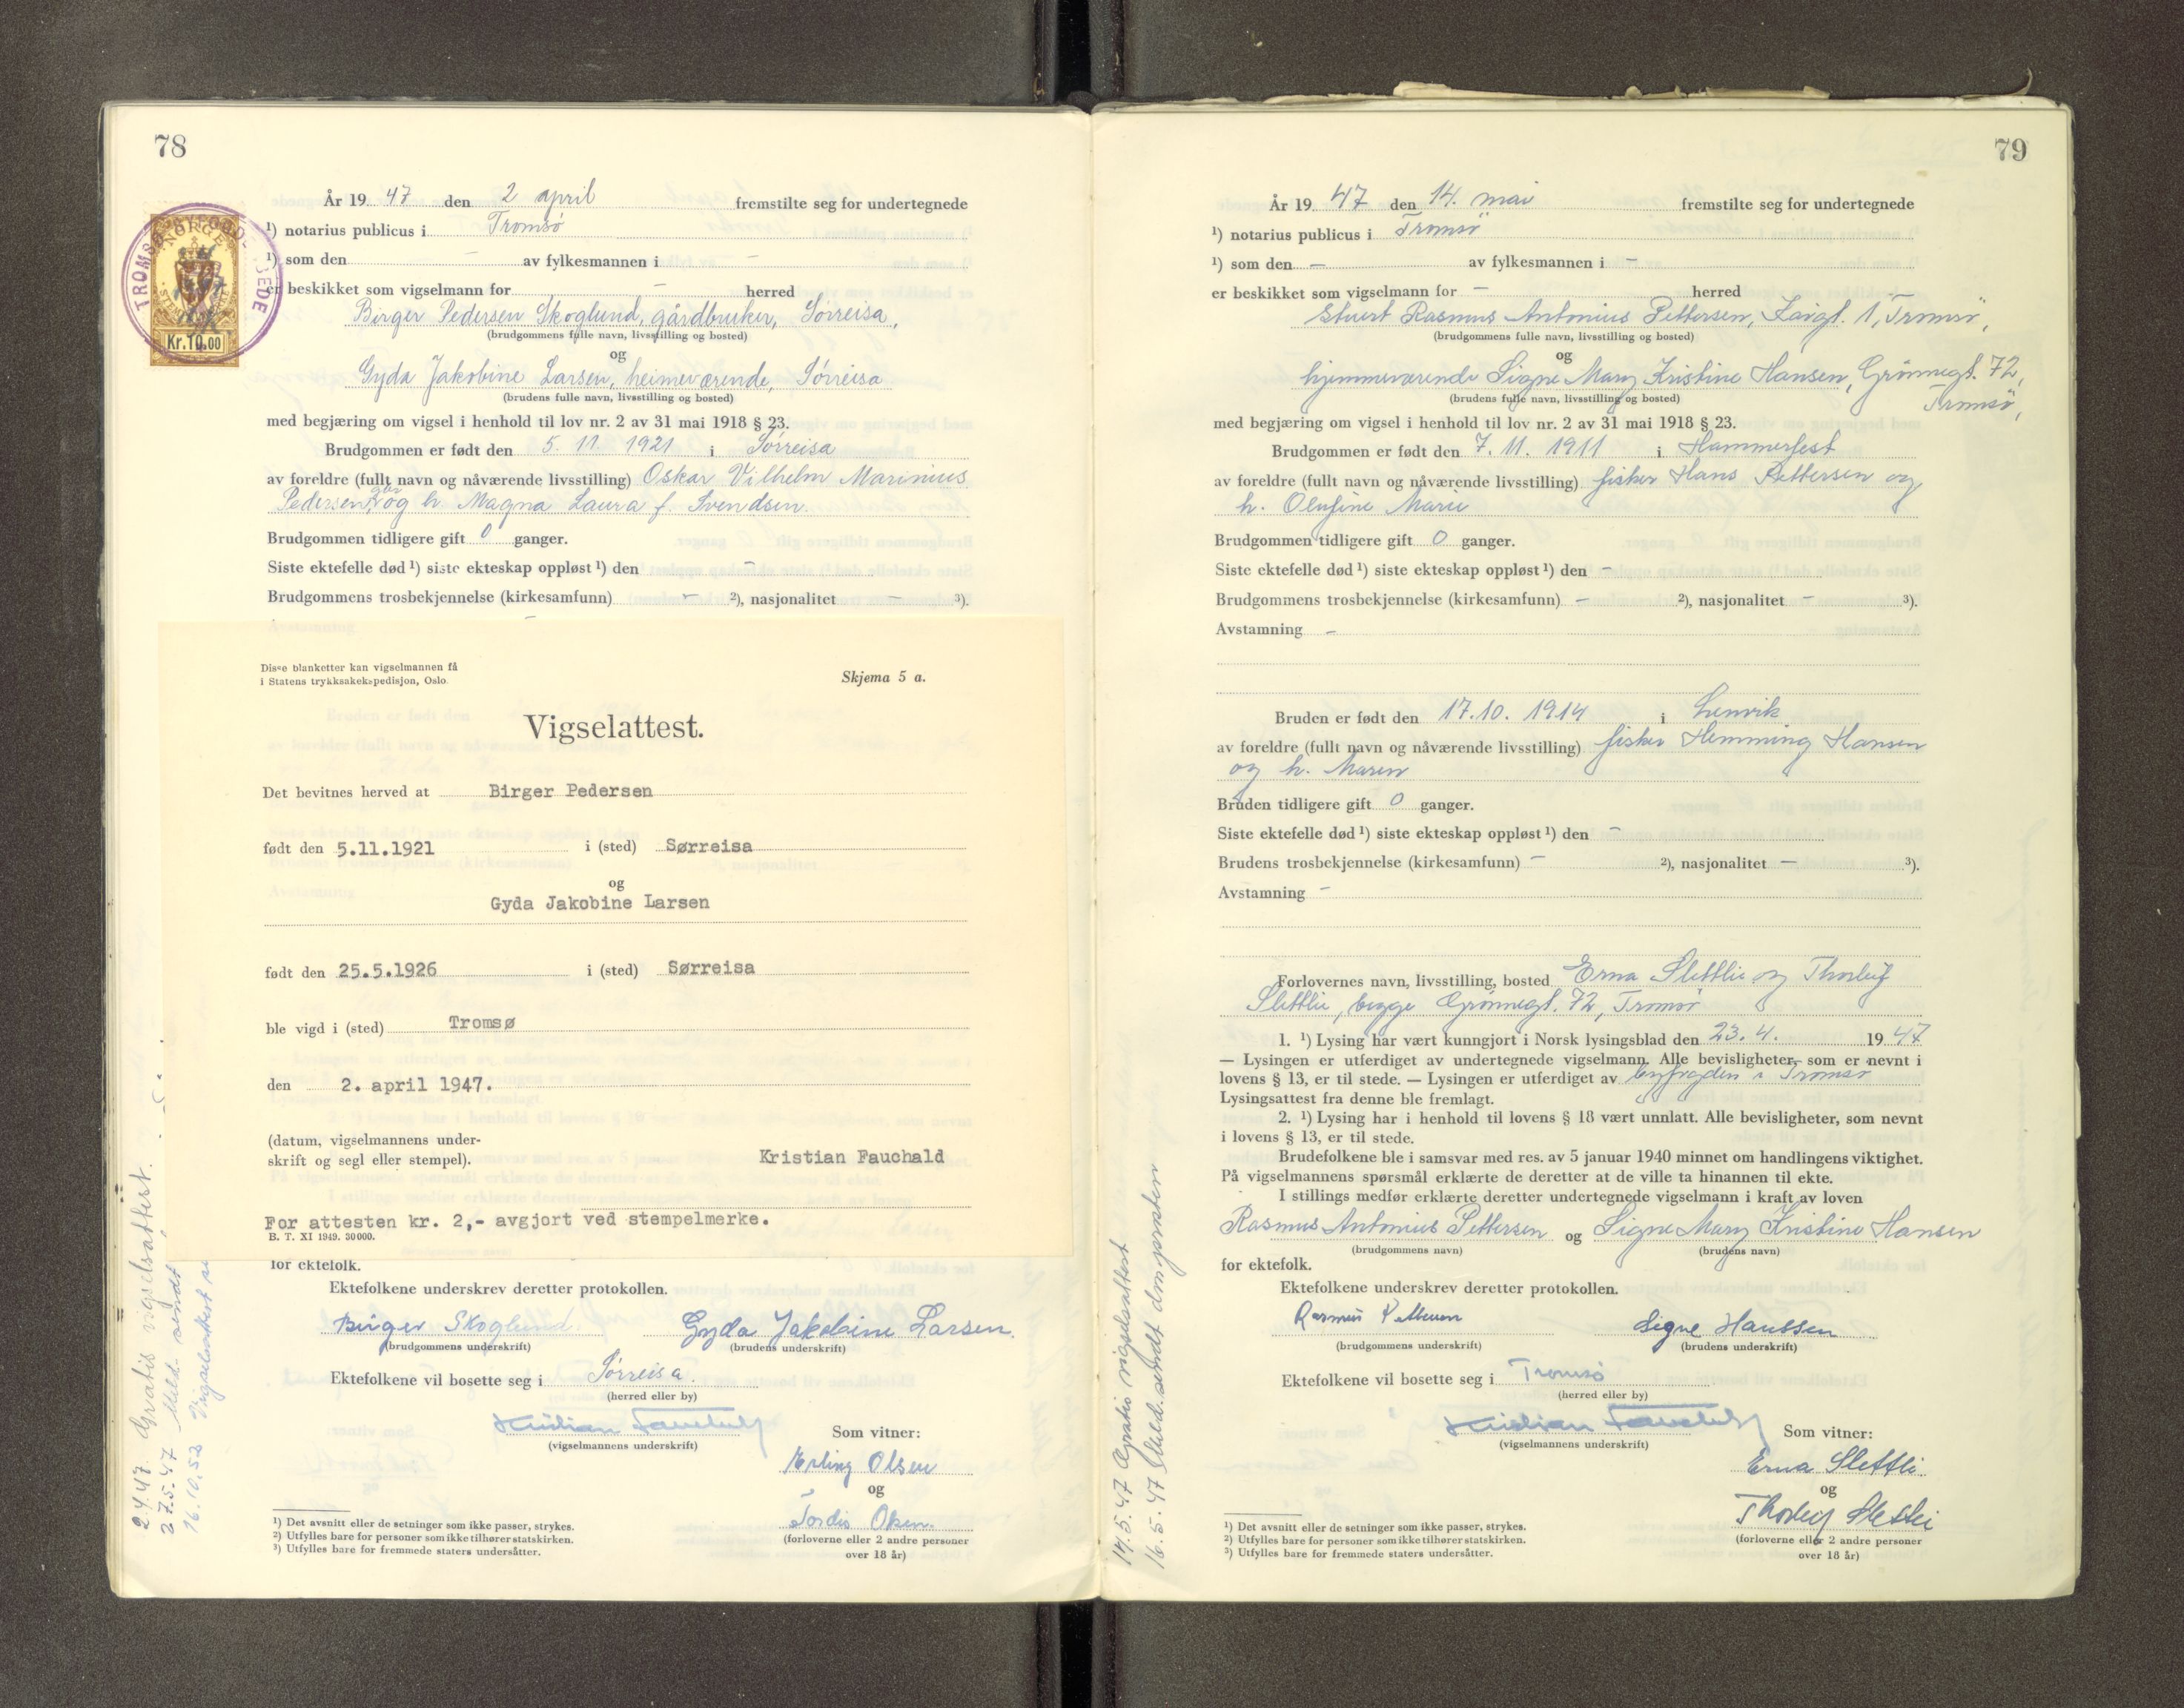 78
År 19 47 den 2 april fremstilte seg for undertegnede
¹) notarius publicus i Tromsø
¹) som den — av fylkesmannen i —
er beskikket som vigselmann for — herred
Birger Pedersen Skoglund, gårdbruker, Sørreisa,
(brudgommens fulle navn, livsstilling og bosted)
og
Gyda Jakobine Larsen, heimeværende, Sørreisa
(brudens fulle navn, livsstilling og bosted)
med begjæring om vigsel i henhold til lov nr. 2 av 31 mai 1918 § 23.
Brudgommen er født den 5. 11. 1921 i Sørreisa
av foreldre (fullt navn og nåværende livsstilling) Oskar Vilhelm Marinius
Pedersen, gbr. og h. Magna Laura f. Svendsen.
Brudgommen tidligere gift 0 ganger.
Siste ektefelle død ¹) siste ekteskap oppløst ¹) den —
Brudgommens trosbekjennelse (kirkesamfunn) — ²), nasjonalitet — ³).
TROMSØ BYFOGD-
EMBEDE
NORGE
Kr.10.00
Disse blanketter kan vigselmannen få
i Statens trykksakekspedisjon, Oslo.
Skjema 5 a.
Vigselattest.
Det bevitnes herved at Birger Pedersen
født den 5.11.1921 i (sted) Sørreisa
og
Gyda Jakobine Larsen
født den 25.5.1926 i (sted) Sørreisa
ble vigd i (sted) Tromsø
den 2. april 1947.
(datum, vigselmannens under-
skrift og segl eller stempel).
Kristian Fauchald
For attesten kr. 2,- avgjort ved stempelmerke.
B. T. XI 1949. 30000.
for ektefolk.
Ektefolkene underskrev deretter protokollen.
Birger Skoglund. Gyda Jakobine Larsen.
(brudgommens underskrift) (brudens underskrift)
Ektefolkene vil bosette seg i Sørreisa.
(herred eller by)
Kristian Fauchald
(vigselmannens underskrift)
Som vitner:
Erling Olsen
og
Tordis Olsen.
(forloverne eller 2 andre personer
over 18 år)
¹) Det avsnitt eller de setninger som ikke passer, strykes.
²) Utfylles bare for personer som ikke tilhører statskirken.
³) Utfylles bare for fremmede staters undersåtter.
2.4.47. Gratis vigselsattest.
27.5.47 Meld. sendt
16.10.52 Vigselsattest
79
År 19 47 den 14. mai fremstilte seg for undertegnede
¹) notarius publicus i Tromsö
¹) som den — av fylkesmannen i —
er beskikket som vigselmann for — herred
stuert Rasmus Antonius Pettersen, 1, Tromsö,
(brudgommens fulle navn, livsstilling og bosted)
og
hjemmeværende Signe Mary Kristine Hansen, Grönnegt. 72,
Tromsö,
(brudens fulle navn, livsstilling og bosted)
med begjæring om vigsel i henhold til lov nr. 2 av 31 mai 1918 § 23.
Brudgommen er født den 7. 11. 1911 i Hammerfest
av foreldre (fullt navn og nåværende livsstilling) fisker Hans Pettersen og
h. Olufine Marie
Brudgommen tidligere gift 0 ganger.
Siste ektefelle død ¹) siste ekteskap oppløst ¹) den —
Brudgommens trosbekjennelse (kirkesamfunn) — ²), nasjonalitet — ³).
Avstamning —
Bruden er født den 17.10. 1914 i Lenvik
av foreldre (fullt navn og nåværende livsstilling) fisker Hemming Hansen
og h. Maren
Bruden tidligere gift 0 ganger.
Siste ektefelle død ¹) siste ekteskap oppløst ¹) den —
Brudens trosbekjennelse (kirkesamfunn) — ²), nasjonalitet — ³).
Avstamning —
Forlovernes navn, livsstilling, bosted Erna Slettli og Thorleif
Slettli, begge Grönnegt. 72, Tromsö
1. ¹) Lysing har vært kunngjort i Norsk lysingsblad den 23. 4. 19 47
— Lysingen er utferdiget av undertegnede vigselmann. Alle bevisligheter, som er nevnt i
lovens § 13, er til stede. — Lysingen er utferdiget av byfogden i Tromsø
Lysingsattest fra denne ble fremlagt.
2. ¹) Lysing har i henhold til lovens § 18 vært unnlatt. Alle bevisligheter, som nevnt
i lovens § 13, er til stede.
Brudefolkene ble i samsvar med res. av 5 januar 1940 minnet om handlingens viktighet.
På vigselmannens spørsmål erklærte de deretter at de ville ta hinannen til ekte.
I stillings medfør erklærte deretter undertegnede vigselmann i kraft av loven
Rasmus Antonius Pettersen og Signe Mary Kristine Hansen
(brudgommens navn) (brudens navn)
for ektefolk.
Ektefolkene underskrev deretter protokollen.
Rasmus Pettersen Signe Hanssen
(brudgommens underskrift) (brudens underskrift)
Ektefolkene vil bosette seg i Tromsø
(herred eller by)
Kristian Fauchald
(vigselmannens underskrift)
Som vitner:
Erna Slettli.
og
Thorleif Slettli
(forloverne eller 2 andre personer
over 18 år)
¹) Det avsnitt eller de setninger som ikke passer, strykes.
²) Utfylles bare for personer som ikke tilhører statskirken.
³) Utfylles bare for fremmede staters undersåtter.
14.5.47 Gratis vigselsattest
16.5.47 Meld. sendt domprosten